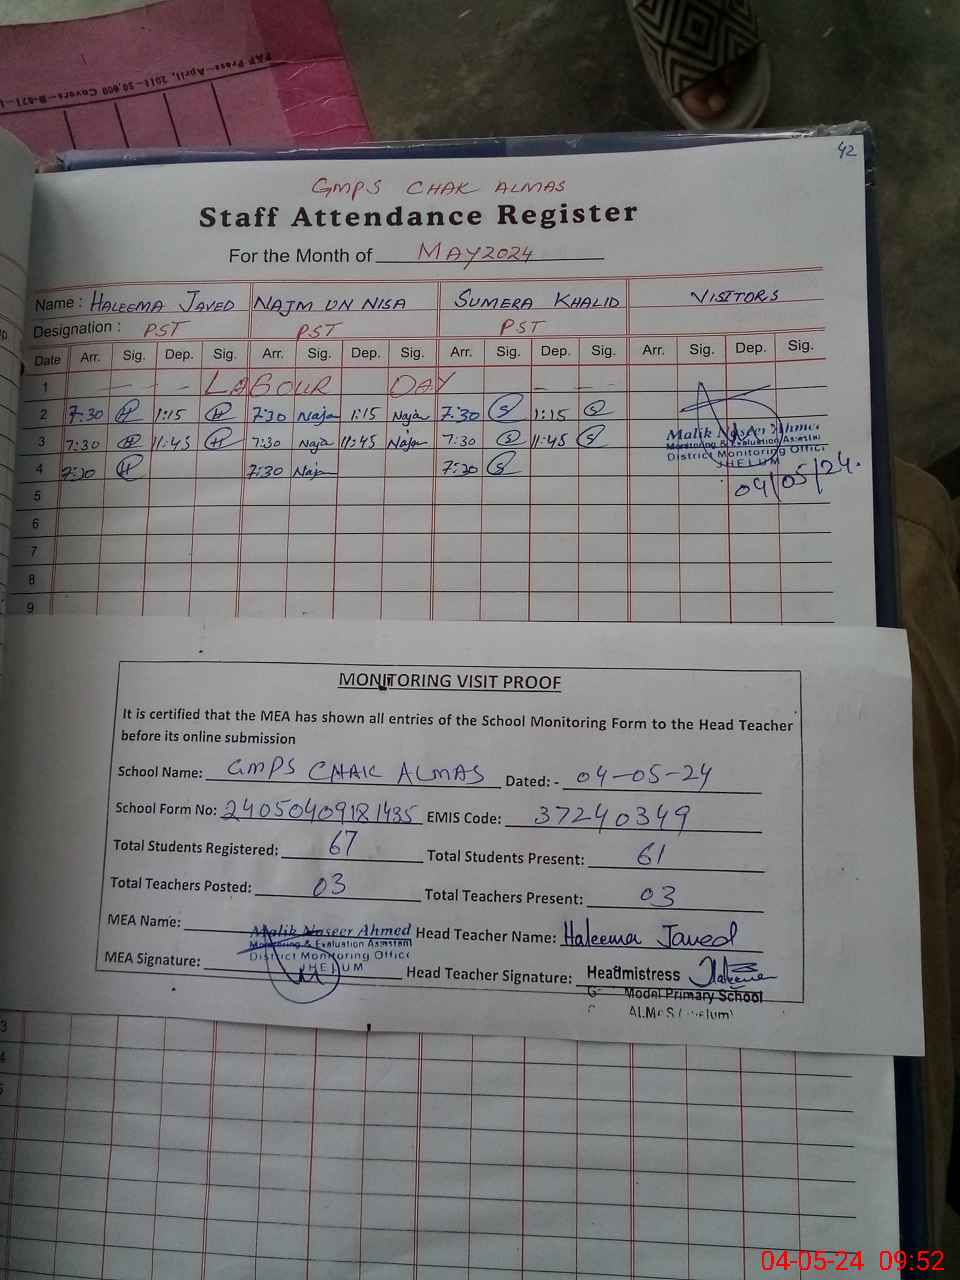 PAP Press—April, 2011—50,000 Covers—B-071—
42
GMPS CHAK ALMAS
Staff Attendance Register
For the Month of MAY 2024
Name : HALEEMA JAVED NAJM UN NISA SUMERA KHALID VISITORS
Designation : PST PST PST
Date Arr. Sig. Dep. Sig. Arr. Sig. Dep. Sig. Arr. Sig. Dep. Sig. Arr. Sig. Dep. Sig.
1 LABOUR DAY
2 7:30 H 1:15 H 7:30 Naja 1:15 Naja 7:30 S 1:15 S
3 7:30 H 11:45 H 7:30 Naja 11:45 Naja 7:30 S 11:45 S
4 7:30 H 7:30 Naja 7:30 S
Malik Naseer Ahmed
Monitoring & Evaluation Assistant
District Monitoring Office
JHELUM
04/05/24.
5
6
7
8
9
MONITORING VISIT PROOF
It is certified that the MEA has shown all entries of the School Monitoring Form to the Head Teacher
before its online submission
School Name: GMPS CHAK ALMAS Dated: - 04-05-24
School Form No: 24050409181435 EMIS Code: 37240349
Total Students Registered: 67 Total Students Present: 61
Total Teachers Posted: 03 Total Teachers Present: 03
MEA Name: Malik Naseer Ahmed Head Teacher Name: Haleema Javed
Monitoring & Evaluation Assistant
District Monitoring Office
JHELUM
MEA Signature: Head Teacher Signature: Headmistress Haleema
Model Primary School
ALMAS (Jhelum)
3
4
5
04-05-24 09:52